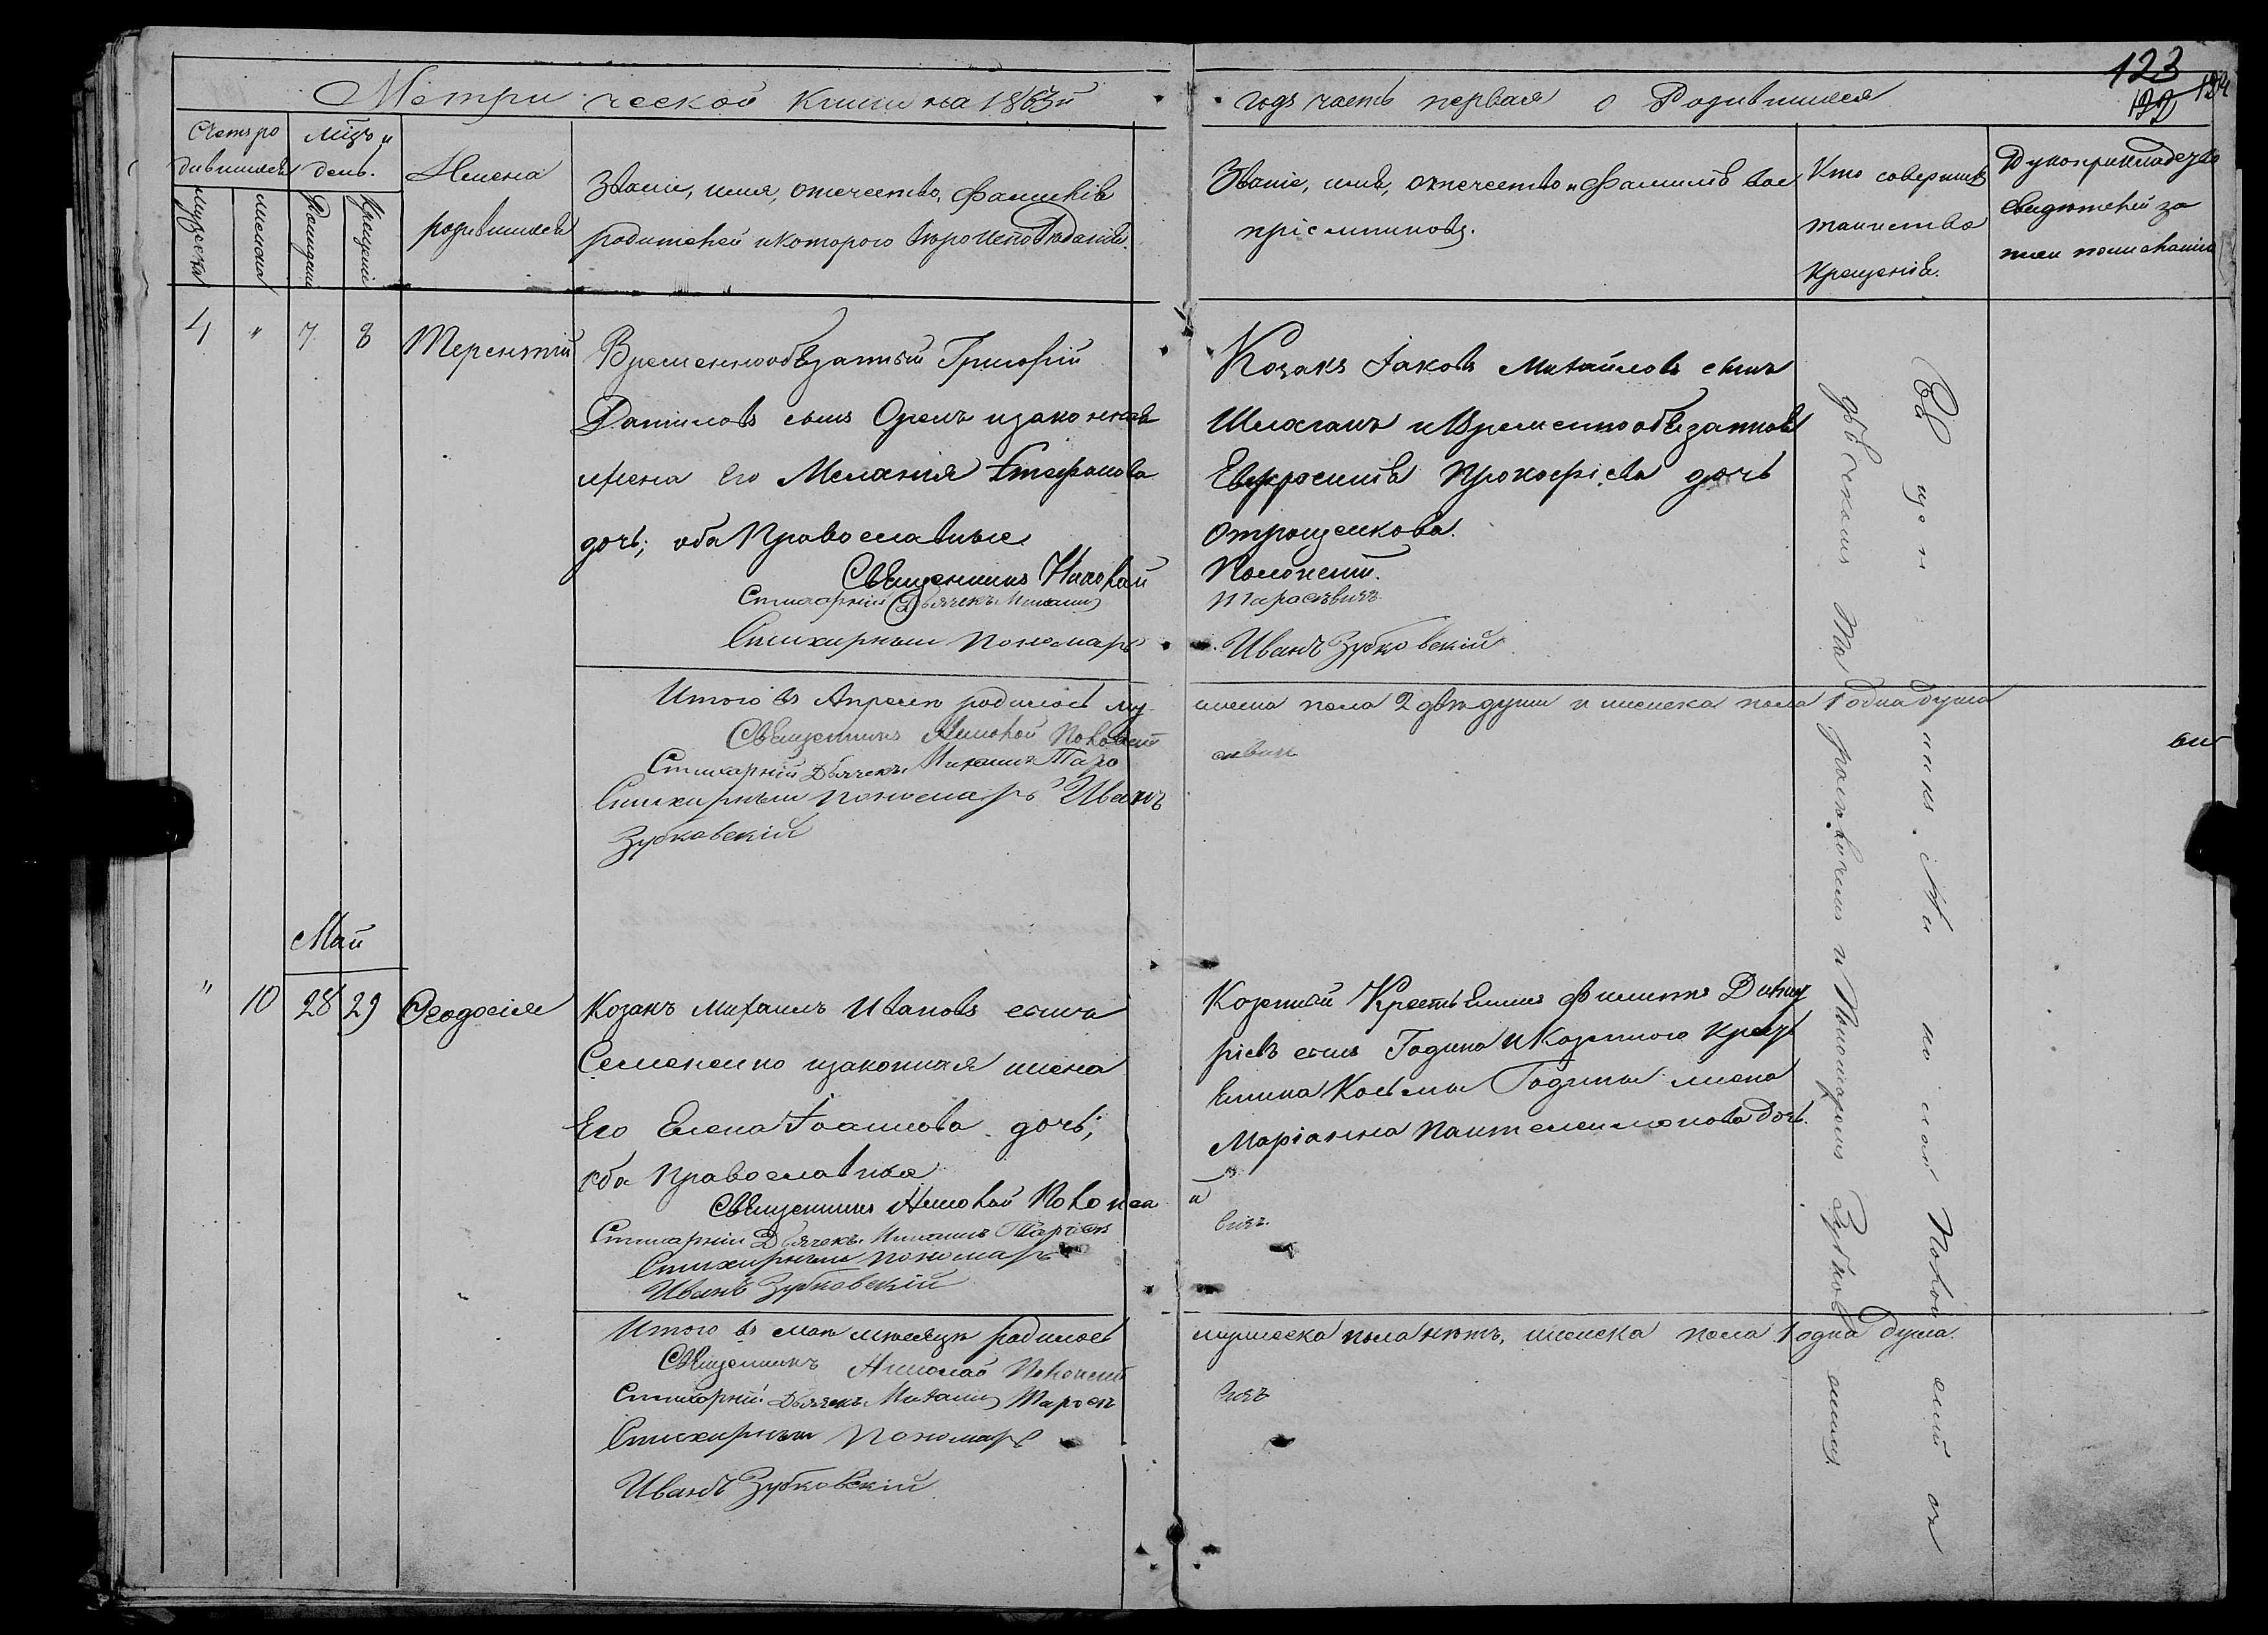 Метрической книги на 1863й годъ часть первая о Родившихся
123
Счетъ родившихся
Мцъ и день.
Мужеска
женска
Рожденіе
Крещеніе
Имена родившихся
Званіе, имя, отечество, фамилія
родителей и котораго вѣроисповѣданія.
Званіе, имя, отечество и фамилія вос
пріемниковъ.
Кто совершилъ
таинство
крещенія.
Рукоприкладство
свидѣтелей за
писи по желанію
4 " 7 8 Терентій
Временнообязанный Григорій
Даниловъ сынъ Орелъ и законная
жена его Меланія Стефанова
дочь; оба Православные
Священникъ Николай
Стихарный Дьячекъ Михаилъ
Стихирный Пономарь
Козакъ Іаковъ Михайловъ сынъ
и Временнообязанная
Евфросинія Прокофіева дочь
Отрощенкова.
Полонскій.
Тарасевичъ
Иванъ Зубковскій
Итого въ Апрелѣ родилось му
жеска пола 2 двѣ души и женска пола 1 одна душа
Священникъ Николай Полонскій
Стихарный Дьячекъ Михаилъ Тара
севичъ
Стихирный пономарь Иванъ
Зубковскій
Май
" 10 28 29 Феодосія
Козакъ Михаилъ Ивановъ сынъ
Семененко и законная жена
Его Елена Іоаннова дочь;
оба православные
Священникъ Николай Полонскі
Стихарный Дьячекъ Михаилъ Тарасе
Стихирный пономарь
Иванъ Зубковскій
Козенный Крестьянинъ Филиппъ
сынъ Година и Козенного крест
янина Косьмы Годины жена
Маріанна Пантелеимонова дочь.
й
вичъ.
Священникъ Николай Полонскій съ
дьячкомъ Тарасевичемъ и Пономаремъ Зубковскимъ.
Итого въ маѣ мѣсяцѣ родилось
мужеска пола нѣтъ, женска пола 1 одна душа.
Священникъ Николай Полонскій
Стихарный Дьячекъ Михаилъ Тарасе
вичъ
Стихирный Пономарь
Иванъ Зубковскій